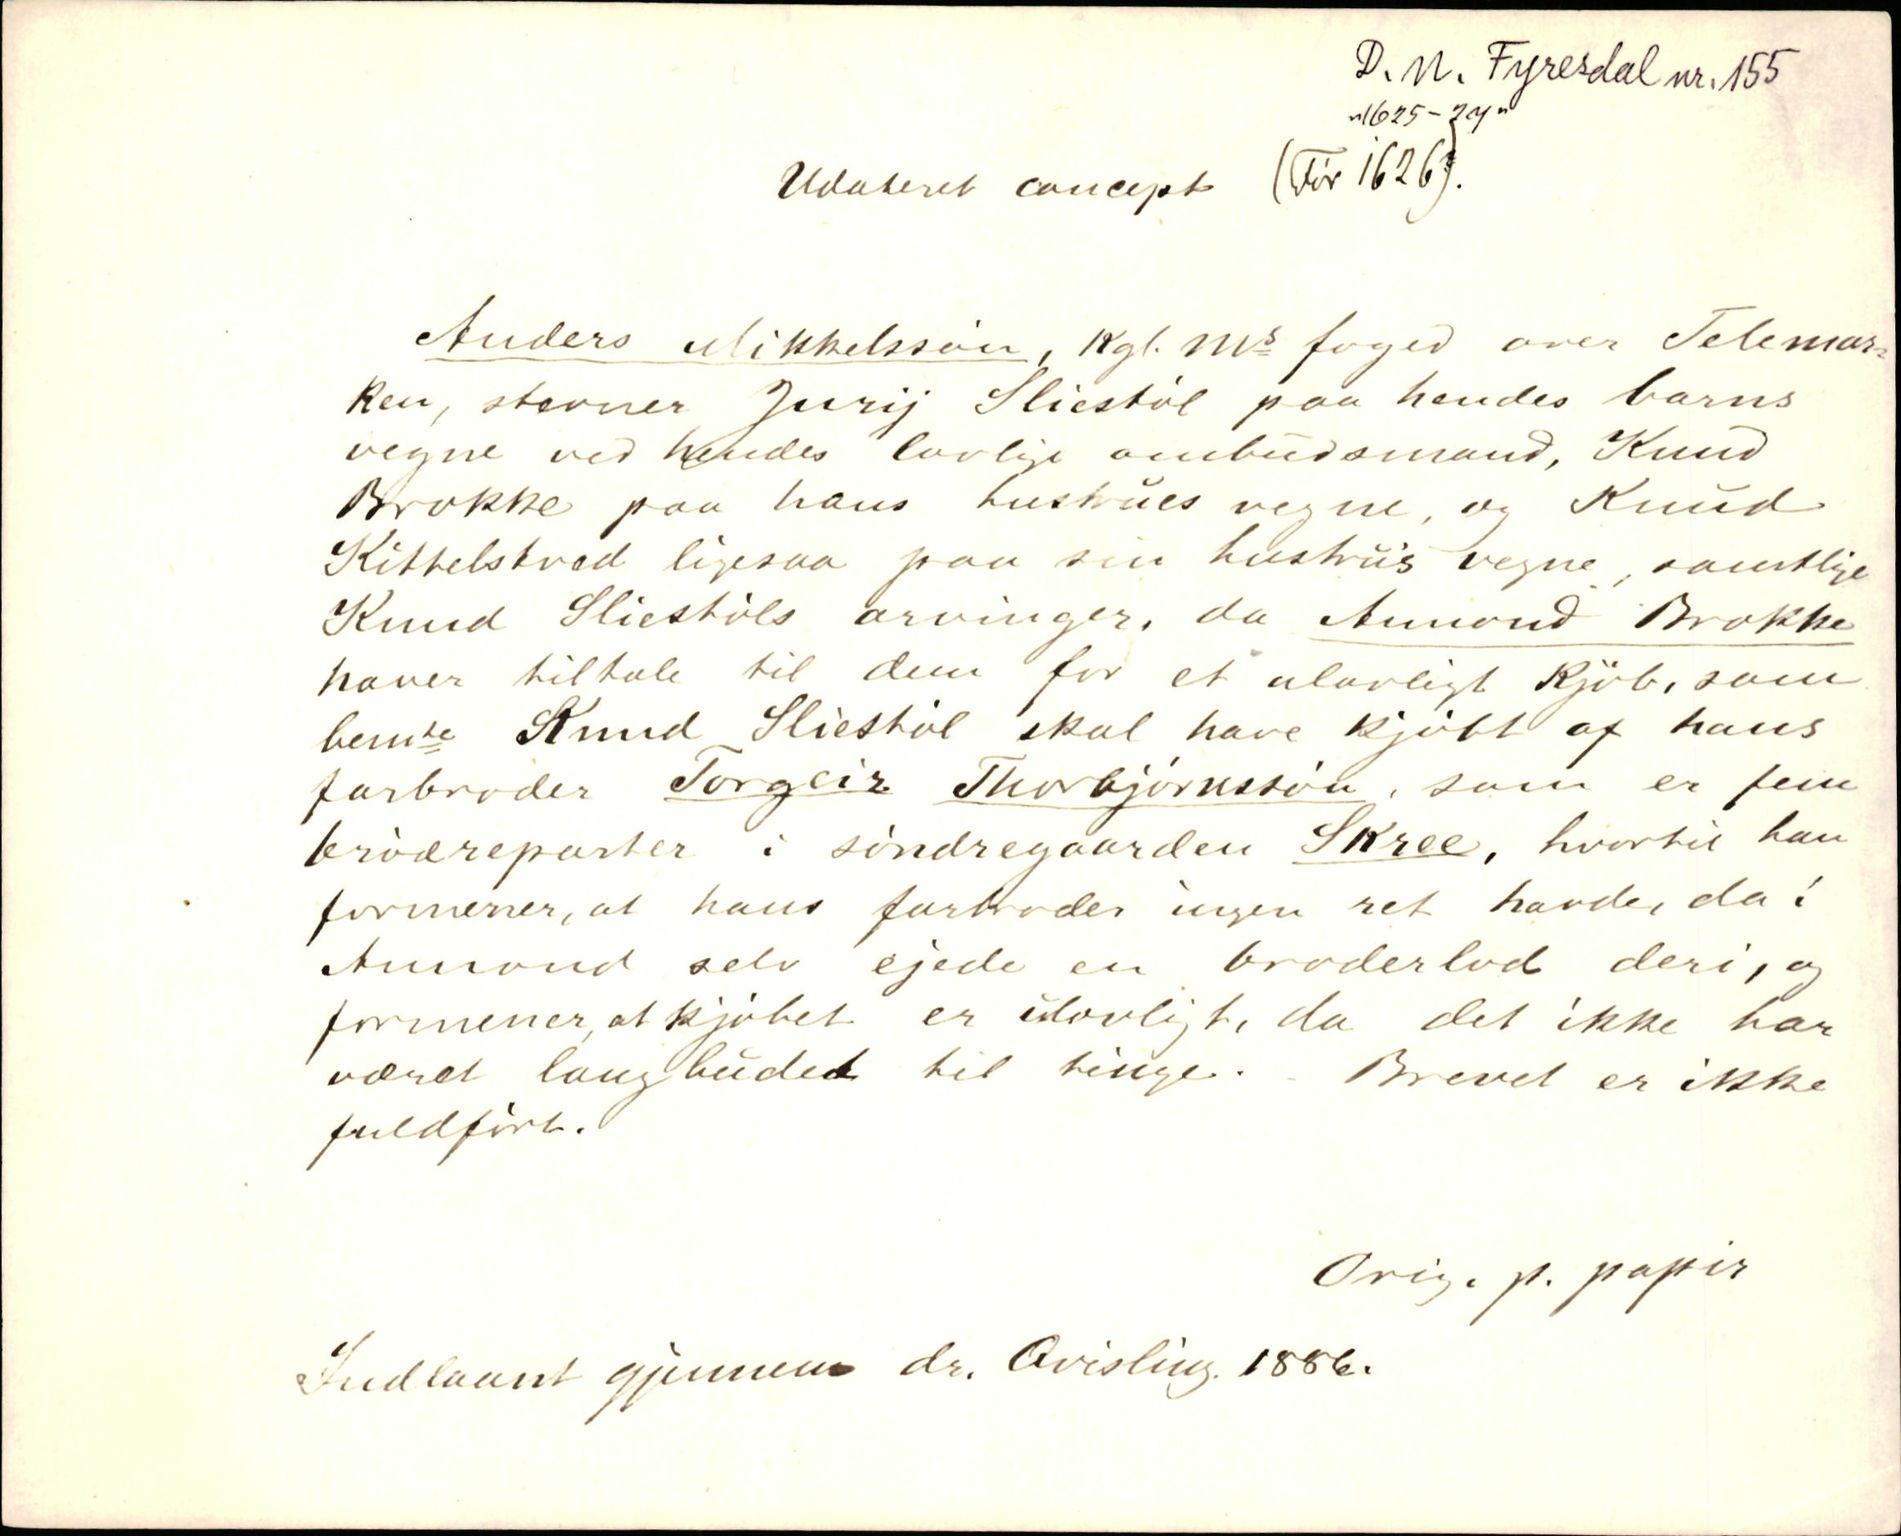 D. N. Fyresdal nr. 155
"1625-27"
Udateret concept (Før 1626?).
Anders Mikkelssøn, Kgl. Ms foged over Telemar-
ken, stevner Jurij Sliestøl paa hendes barns
vegne ved hendes lovlige ombudsmand, Knud
Brokke paa hans hustrues vegne, og Knud
Kittelstved ligesaa paa sin hustrus vegne, samtlige
Knud Sliestøls arvinger, da Aumond Brokke
haver tiltale til dem for et ulovligt Kjøb, som
bemte Knud Sliestøl skal have kjøbt af hans
farbroder Torgeir Thorbjørnssøn, som er fem
brødreparter i søndregaarden Skree, hvortil han
formener, at hans farbroder ingen ret havde, da
Aumond selv ejede en broderlod deri, og
formener, at kjøbet er ulovligt, da det ikke har
været laugbudet til tinge. - Brevet er ikke
fuldført.
Orig. p. papir
Indlaant gjennem dr. Qvisling. 1886.